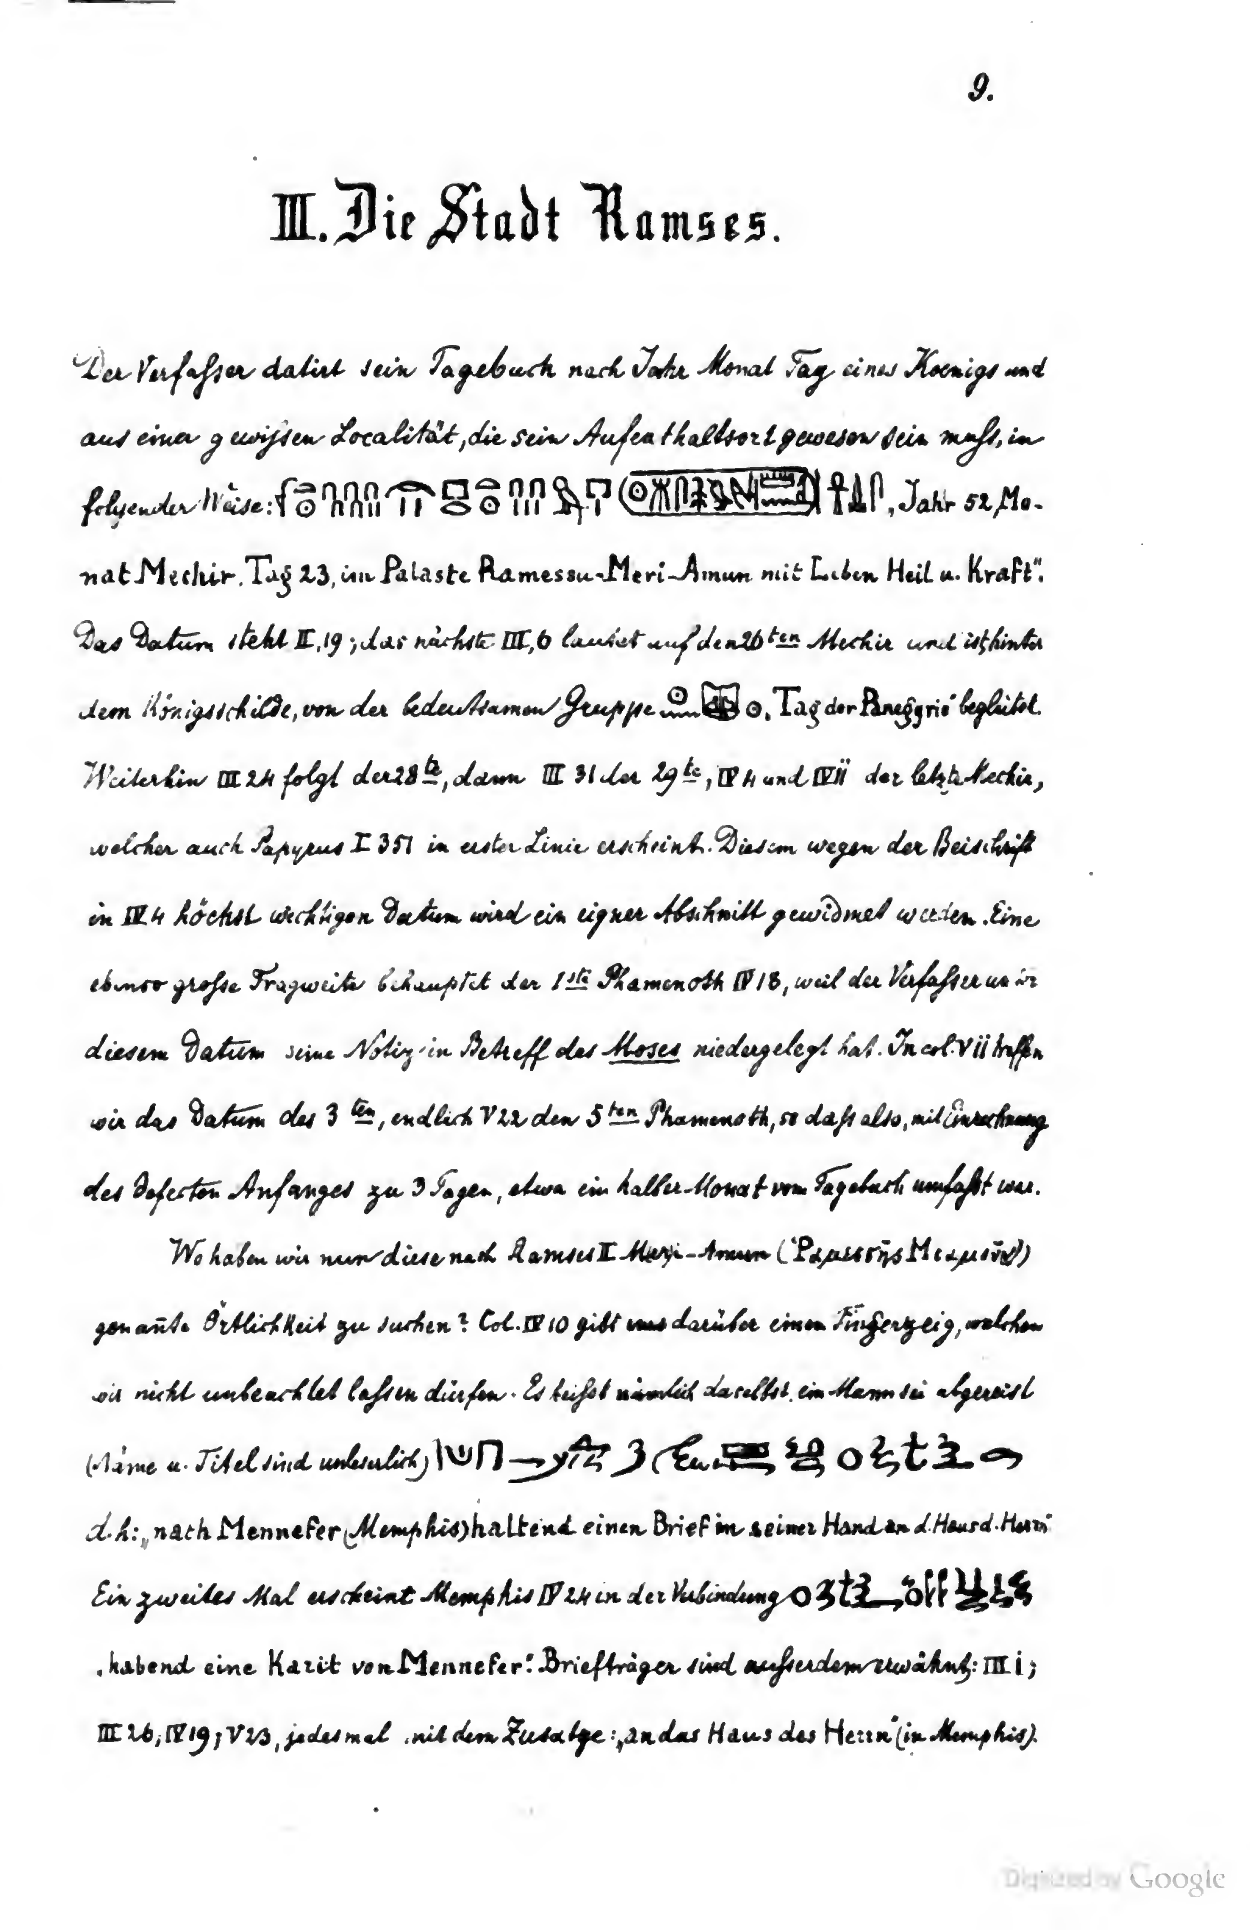 9.
III. Die Stadt Ramses.
Der Verfaſser datirt sein Tagebuch nach Jahr Monat Tag eines Koenigs und
aus einer gewiſsen Localität, die sein Aufenthaltsort gewesen sein muſs, in
folgender Weise: , Jahr 52, Mo-
nat Mechir, Tag 23, im Palaste Ramessu-Meri-Amun mit Leben Heil u. Kraft".
Das Datum steht II,19; das nächste III,6 lautet auf den 26ten Mechir und ist, hinter
dem Königsschilde, von der bedeutsamen Gruppe „Tag der Panegyrie" begleitet.
Weiterhin III 24 folgt der 28te, dann III 31 der 29te, IV 4 und der letzte Mechir,
welcher auch Papyrus I 351 in erster Linie erscheint. Diesem wegen der Beischrift
in IV 4 höchst wichtigen Datum wird ein eigner Abschnitt gewidmet werden. Eine
ebenso groſse Tragweite behauptet der 1ste Phamenoth IV 18, weil der Verfaſser unter
diesem Datum seine Notiz in Betreff des Moses niedergelegt hat. In col. VII treffen
wir das Datum des 3ten, endlich V 22 den 5ten Phamenoth, so daſs also, mit Einrechnung
des defecten Anfanges zu 3 Tagen, etwa ein halber Monat vom Tagebuch umfaſst war.
Wo haben wir nun diese nach Ramses II Meri-Amun (Ῥαμεσσῆς Μεαμοῦν)
genan̄te Örtlichkeit zu suchen? Col. IV 10 gibt uns darüber einen Fingerzeig, welchen
wir nicht unbeachtet laſsen dürfen. Es heiſst nämlich daselbst, ein Mann sei abgereist
(Name u. Titel sind unleserlich)
d.h: „nach Mennefer (Memphis) haltend einen Brief in seiner Hand an d. Haus d. Herrn"
Ein zweites Mal erscheint Memphis IV 24 in der Verbindung
„habend eine Karit von Mennefer". Briefträger sind auſserdem erwähnt: III i;
III 26; IV 19; V 23, jedesmal mit dem Zusatze: „an das Haus des Herrn" (in Memphis).
Digitized by Google